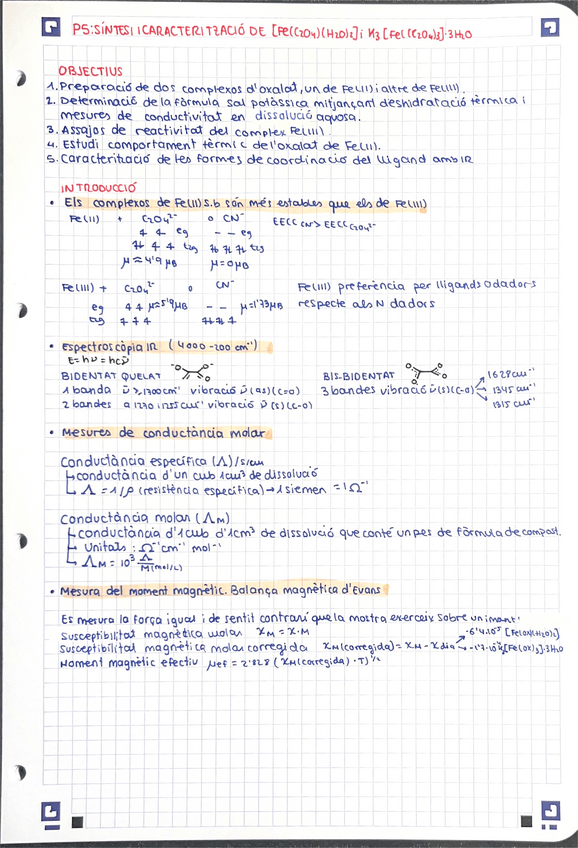 P5: SÍNTESI I CARACTERITZACIÓ DE [Fe(C₂O₄)(H₂O)₂] i K₃[Fe(C₂O₄)₃]·3H₂O
OBJECTIUS
1. Preparació de dos complexos d'oxalat, un de Fe(II) i altre de Fe(III).
2. Determinació de la fórmula sal potàssica mitjançant deshidratació tèrmica i
mesures de conductivitat en dissolució aquosa.
3. Assajos de reactivitat del complex Fe(III).
4. Estudi comportament tèrmic de l'oxalat de Fe(II).
5. Caracterització de les formes de coordinació del lligand amb IR
INTRODUCCIÓ
• Els complexos de Fe(II) S.b són més estables que els de Fe(III)
Fe(II) + C₂O₄²⁻ o CN⁻ EECC CN > EECC C₂O₄²⁻
eg – – eg
t2g t2g
μ≈4'9 μB μ=0μB
Fe(III) + C₂O₄²⁻ o CN⁻ Fe(III) preferència per lligands O dadors
eg μ≈5'9μB – – μ=1'73μB respecte als N dadors
t2g
• Espectroscòpia IR (4000-200 cm⁻¹)
E=hν=hcν̄
BIDENTAT QUELAT BIS-BIDENTAT 1628cm⁻¹
1 banda ν̄ ≥1700cm⁻¹ vibració ν̄(as)(C=O) 3 bandes vibració ν̄(s)(C-O) 1345 cm⁻¹
2 bandes a 1270 i 1255 cm⁻¹ vibració ν̄(s)(C-O) 1315 cm⁻¹
• Mesures de conductància molar
Conductància específica (Λ)/S/cm
↳ conductància d'un cub 1cm³ de dissolució
↳ Λ = 1/ρ (resistència específica) → 1 siemen = 1Ω⁻¹
Conductància molar (ΛM)
↳ conductància d'1 cub d'1cm³ de dissolució que conté un pes de fórmula de compost.
↳ Unitats: Ω⁻¹cm⁻¹ mol⁻¹
↳ ΛM = 10³ Λ/M(mol/L)
• Mesura del moment magnètic. Balança magnètica d'Evans
Es mesura la força igual i de sentit contrari que la mostra exerceix sobre un imant.
Susceptibilitat magnètica molar χM = χ·M -6'4·10⁻⁵ [Fe(ox)(H₂O)₂]
Susceptibilitat magnètica molar corregida χM(corregida) = χM - χdia → -1'7·10⁻⁴ K₃[Fe(ox)₃]·3H₂O
Moment magnètic efectiu μef = 2'828 (χM(corregida)·T)^½